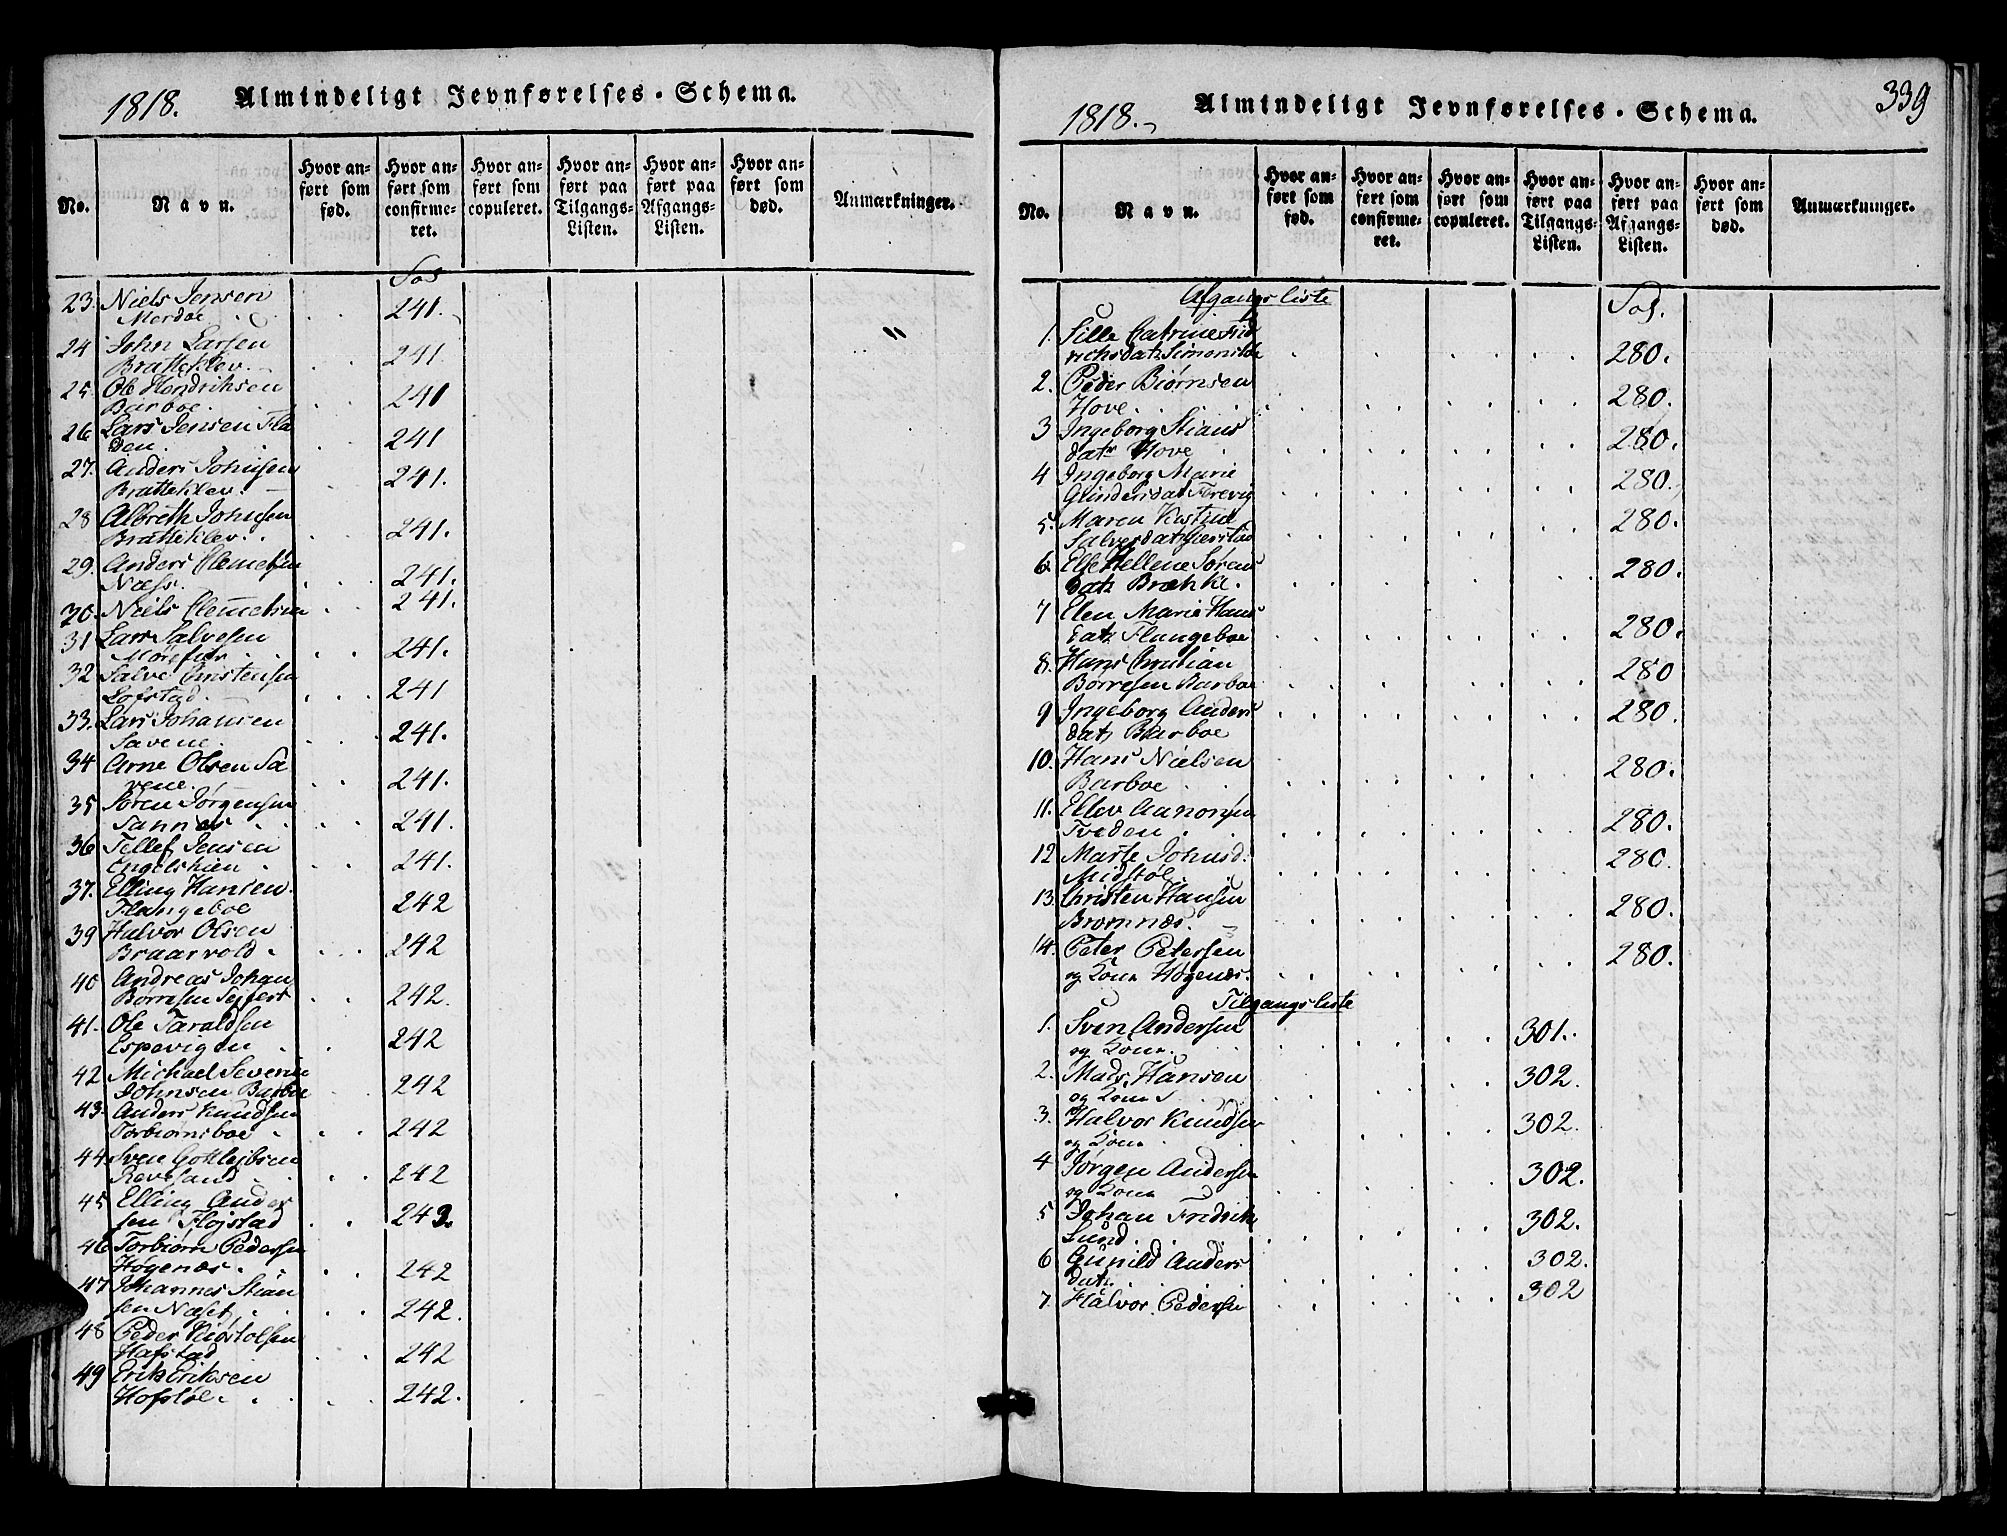 1818. Almindeligt Jevnførelses-Schema.
No. Navn. Hvor anført som fød. Hvor anført som confirmeret. Hvor anført som copuleret. Hvor anført paa Tilgangs-Listen. Hvor anført paa Afgangs-Listen. Hvor anført som død. Anmærkninger.
23. Niels Jensen
Merdøe 241.
24 John Larsen
Bratteklev 241
25. Ole Hendriksen
Barboe. 241
26 Lars Jensen Fla
den. 241
27. Anders Johnsen
Bratteklev. 241.
28 Albreth Johnsen
Bratteklev. 241.
29. Anders Clemetsen
Næss. 241.
30. Niels Clemetsen 241.
31 Lars Salvesen
241.
32 Salve Christensen
Lofstad 241
33. Lars Johansen
Savene. 241.
34 Arne Olsen Sa
vene. 241.
35 Søren Jørgensen
Sannes 241.
36 Tellef Jensen
Engelskien 241.
37. Elling Hansen
Flangeboe 242
39 Halvor Olsen
Braarvold 242
40 Andreas Johan
Børresen 242.
41. Ole Taraldsen
Espevigen 242
42 Michael Severin
Johnsen Barboe 242
43. Anders Knudsen
Torbiørnsboe 242
44 Sven Gottlibsen
Revesand 242
45 Elling Ander
sen Fløjstad 242.
46 Torbiørn Pedersen
Høgenæs. 242
47 Johannes Stian
sen Næset 242.
48 Peder Kiøstolsen
Hafstad 242
49 Erik Eriksen
Hofstøl. 242.
1818. Almindeligt Jevnførelses-Schema. 339
No. Navn. Hvor anført som fød. Hvor anført som confirmeret. Hvor anført som copuleret. Hvor anført paa Tilgangs-Listen. Hvor anført paa Afgangs-Listen. Hvor anført som død. Anmærkninger.
Afgangsliste
1. Sille Catrine Frid
richsdatr 280.
2. Peder Biørnsen
Hove. 280.
3 Ingeborg Stians
datr Hove 280.
4 Ingeborg Marie
280.
5. Maren Kistine
Salvesdatr 280.
6. Else Hellene Sørens
datr Brække. 280.
7 Elen Marie Hans
datr Flangeboe 280.
8. Hans Christian
Børresen Barboe 280
9 Ingeborg Anders
datr Barboe 280.
10. Hans Nielsen
Barboe 280.
11. Ellev Aanonsen
Tveden 280.
12 Marte Johnsd.
Midstøl 280.
13. Christen Hansen
Bromnæs. 280.
14. Peter Petersen
og Kone Høgenæs. 280.
Tilgangsliste
1. Sven Andersen
og Kone. 301.
2. Mads Hansen
og Kone 302.
3. Halvor Knudsen
og Kone 302.
4 Jørgen Andersen
og Kone 302.
5 Johan Fredrik
Lund 302.
6 Gunild Anders
datr. 302.
7. Halvor Pedersen 302